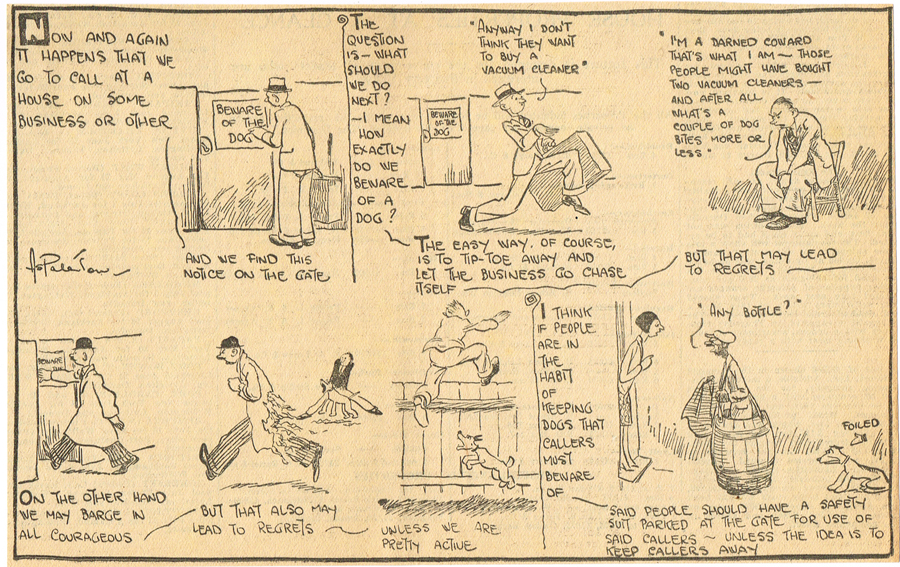 NOW AND AGAIN
IT HAPPENS THAT WE
GO TO CALL AT A
HOUSE ON SOME
BUSINESS OR OTHER
BEWARE
OF THE
DOG
AND WE FIND THIS
NOTICE ON THE GATE
THE
QUESTION
IS — WHAT
SHOULD
WE DO
NEXT?
— I MEAN
HOW
EXACTLY
DO WE
BEWARE
OF A
DOG?
"ANYWAY I DON'T
THINK THEY WANT
TO BUY A
VACUUM CLEANER"
BEWARE
OF THE
DOG
THE EASY WAY, OF COURSE,
IS TO TIP-TOE AWAY AND
LET THE BUSINESS GO CHASE
ITSELF
"I'M A DARNED COWARD
THAT'S WHAT I AM — THOSE
PEOPLE MIGHT HAVE BOUGHT
TWO VACUUM CLEANERS —
AND AFTER ALL
WHAT'S A
COUPLE OF DOG
BITES MORE OR
LESS"
BUT THAT MAY LEAD
TO REGRETS
BEWARE
ON THE OTHER HAND
WE MAY BARGE IN
ALL COURAGEOUS
BUT THAT ALSO MAY
LEAD TO REGRETS
UNLESS WE ARE
PRETTY ACTIVE
I THINK
IF PEOPLE
ARE IN
THE
HABIT
OF
KEEPING
DOGS THAT
CALLERS
MUST
BEWARE
OF
"ANY BOTTLE?"
FOILED
SAID PEOPLE SHOULD HAVE A SAFETY
SUIT PARKED AT THE GATE FOR USE OF
SAID CALLERS ~ UNLESS THE IDEA IS TO
KEEP CALLERS AWAY